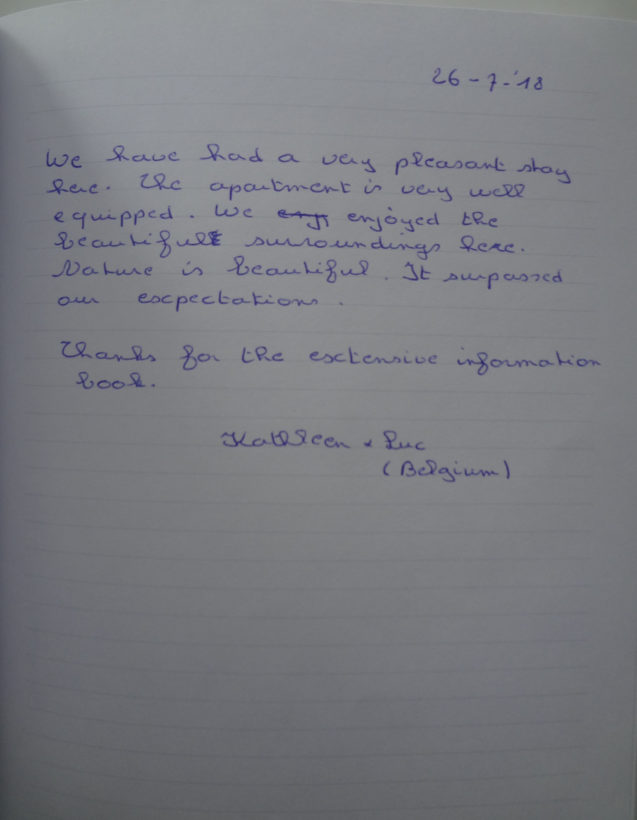 26-7-'18
We have had a very pleasant stay
here. The apartment is very well
equipped. We enjoyed the
beautiful surroundings here.
Nature is beautiful. It surpassed
our expectations.
Thanks for the extensive information
book.
Kathleen & Luc
(Belgium)